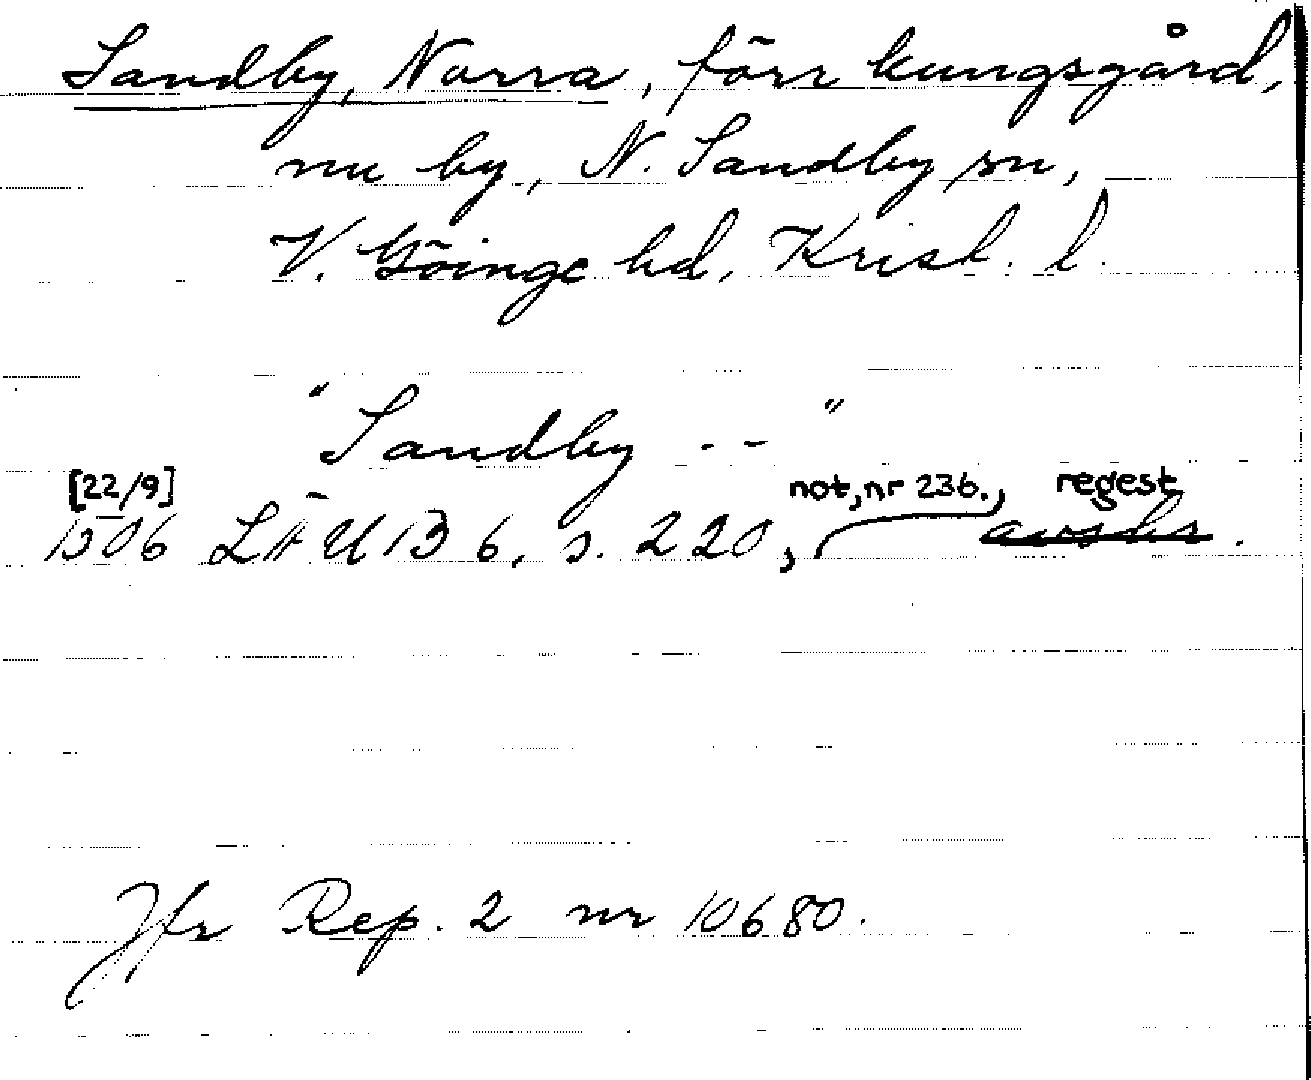 Sandby, Norra, förr kungsgård,
nu by, N. Sandby sn,
V. Göinge hd, Krist. l.
"Sandby --"
[22/9] not, nr 236., regest
1506 LÄUB 6, s. 220, avskr.
Jfr Rep. 2 nr 10680.